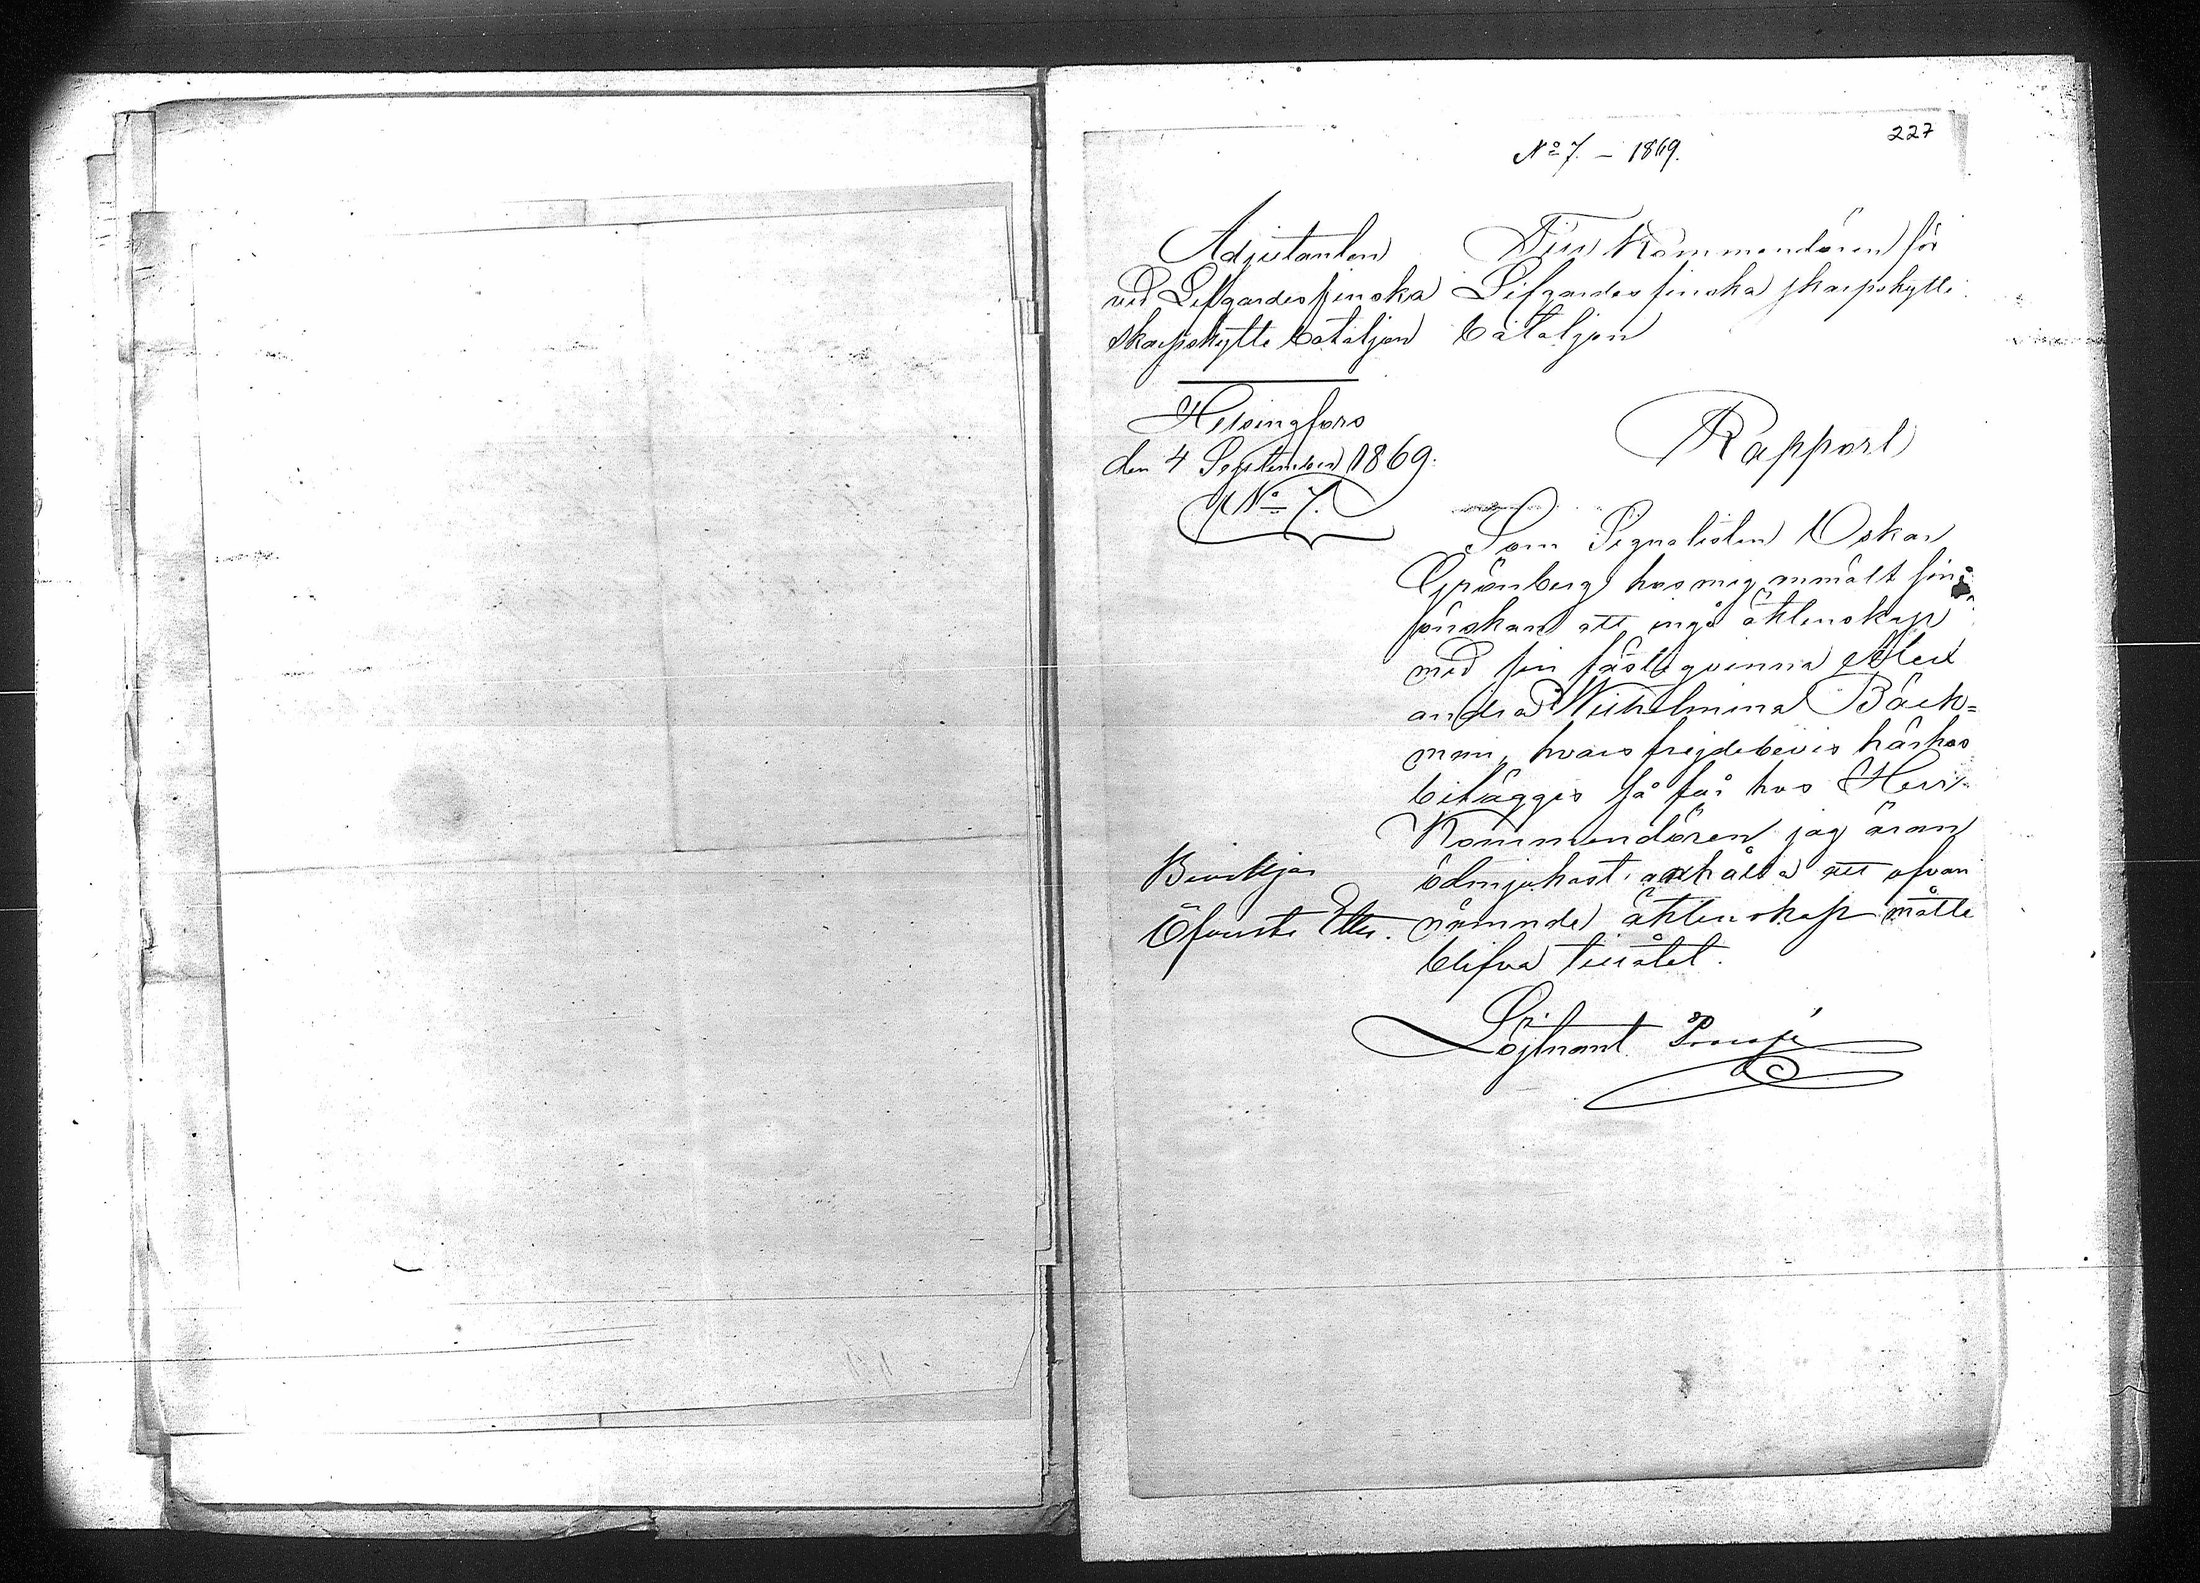 227
No 7. – 1869.
Adjutanten
vid Lifgardes finska
skarpskytte bataljon
Helsingfors
den 4 September 1869.
No 7.
Till Kommendören för
Lifgardes finska skarpskytte
bataljon
Rapport
Som Signalisten Oskar
Grönberg hos mig anmält sin
önskan att ingå äktenskap
med sin fästeqvinna Alex
andra Wilhelmina Bäck=
man, hvars frejdebevis härhos
bilägges så får hos Herr
Kommendören jag äran
ödmjukast anhålla att ofvan
nämnde äktenskap måtte
blifva tillåtet.
Löjtnant
Beviljas
Öfverste